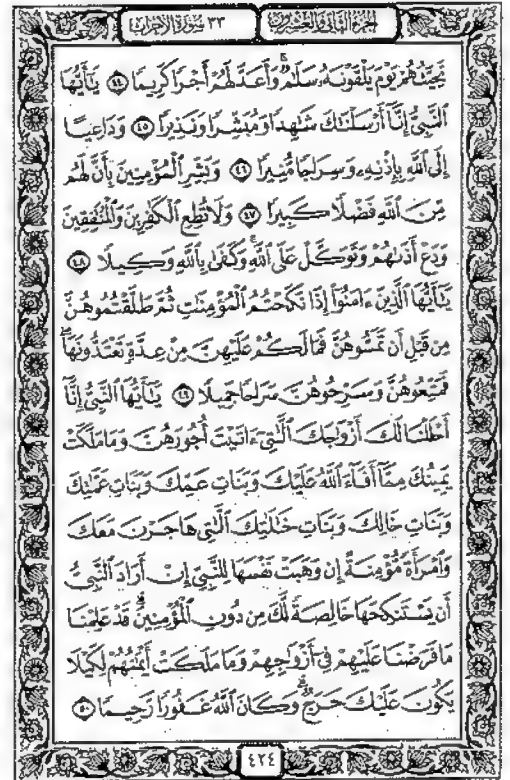 الجزء الثاني والعشرون
٣٣ سورة الأحزاب
تَحِيَّتُهُمْ يَوْمَ يَلْقَوْنَهُۥ سَلَـٰمٌ وَأَعَدَّ لَهُمْ أَجْرًا كَرِيمًا ٤٤ يَـٰٓأَيُّهَا
ٱلنَّبِىُّ إِنَّآ أَرْسَلْنَـٰكَ شَـٰهِدًا وَمُبَشِّرًا وَنَذِيرًا ٤٥ وَدَاعِيًا
إِلَى ٱللَّهِ بِإِذْنِهِۦ وَسِرَاجًا مُّنِيرًا ٤٦ وَبَشِّرِ ٱلْمُؤْمِنِينَ بِأَنَّ لَهُم
مِّنَ ٱللَّهِ فَضْلًا كَبِيرًا ٤٧ وَلَا تُطِعِ ٱلْكَـٰفِرِينَ وَٱلْمُنَـٰفِقِينَ
وَدَعْ أَذَىٰهُمْ وَتَوَكَّلْ عَلَى ٱللَّهِ وَكَفَىٰ بِٱللَّهِ وَكِيلًا ٤٨
يَـٰٓأَيُّهَا ٱلَّذِينَ ءَامَنُوٓا۟ إِذَا نَكَحْتُمُ ٱلْمُؤْمِنَـٰتِ ثُمَّ طَلَّقْتُمُوهُنَّ
مِن قَبْلِ أَن تَمَسُّوهُنَّ فَمَا لَكُمْ عَلَيْهِنَّ مِنْ عِدَّةٍ تَعْتَدُّونَهَا
فَمَتِّعُوهُنَّ وَسَرِّحُوهُنَّ سَرَاحًا جَمِيلًا ٤٩ يَـٰٓأَيُّهَا ٱلنَّبِىُّ إِنَّآ
أَحْلَلْنَا لَكَ أَزْوَٰجَكَ ٱلَّـٰتِىٓ ءَاتَيْتَ أُجُورَهُنَّ وَمَا مَلَكَتْ
يَمِينُكَ مِمَّآ أَفَآءَ ٱللَّهُ عَلَيْكَ وَبَنَاتِ عَمِّكَ وَبَنَاتِ عَمَّـٰتِكَ
وَبَنَاتِ خَالِكَ وَبَنَاتِ خَـٰلَـٰتِكَ ٱلَّـٰتِى هَاجَرْنَ مَعَكَ
وَٱمْرَأَةً مُّؤْمِنَةً إِن وَهَبَتْ نَفْسَهَا لِلنَّبِىِّ إِنْ أَرَادَ ٱلنَّبِىُّ
أَن يَسْتَنكِحَهَا خَالِصَةً لَّكَ مِن دُونِ ٱلْمُؤْمِنِينَ قَدْ عَلِمْنَا
مَا فَرَضْنَا عَلَيْهِمْ فِىٓ أَزْوَٰجِهِمْ وَمَا مَلَكَتْ أَيْمَـٰنُهُمْ لِكَيْلَا
يَكُونَ عَلَيْكَ حَرَجٌ وَكَانَ ٱللَّهُ غَفُورًا رَّحِيمًا ٥٠
٤٢٤